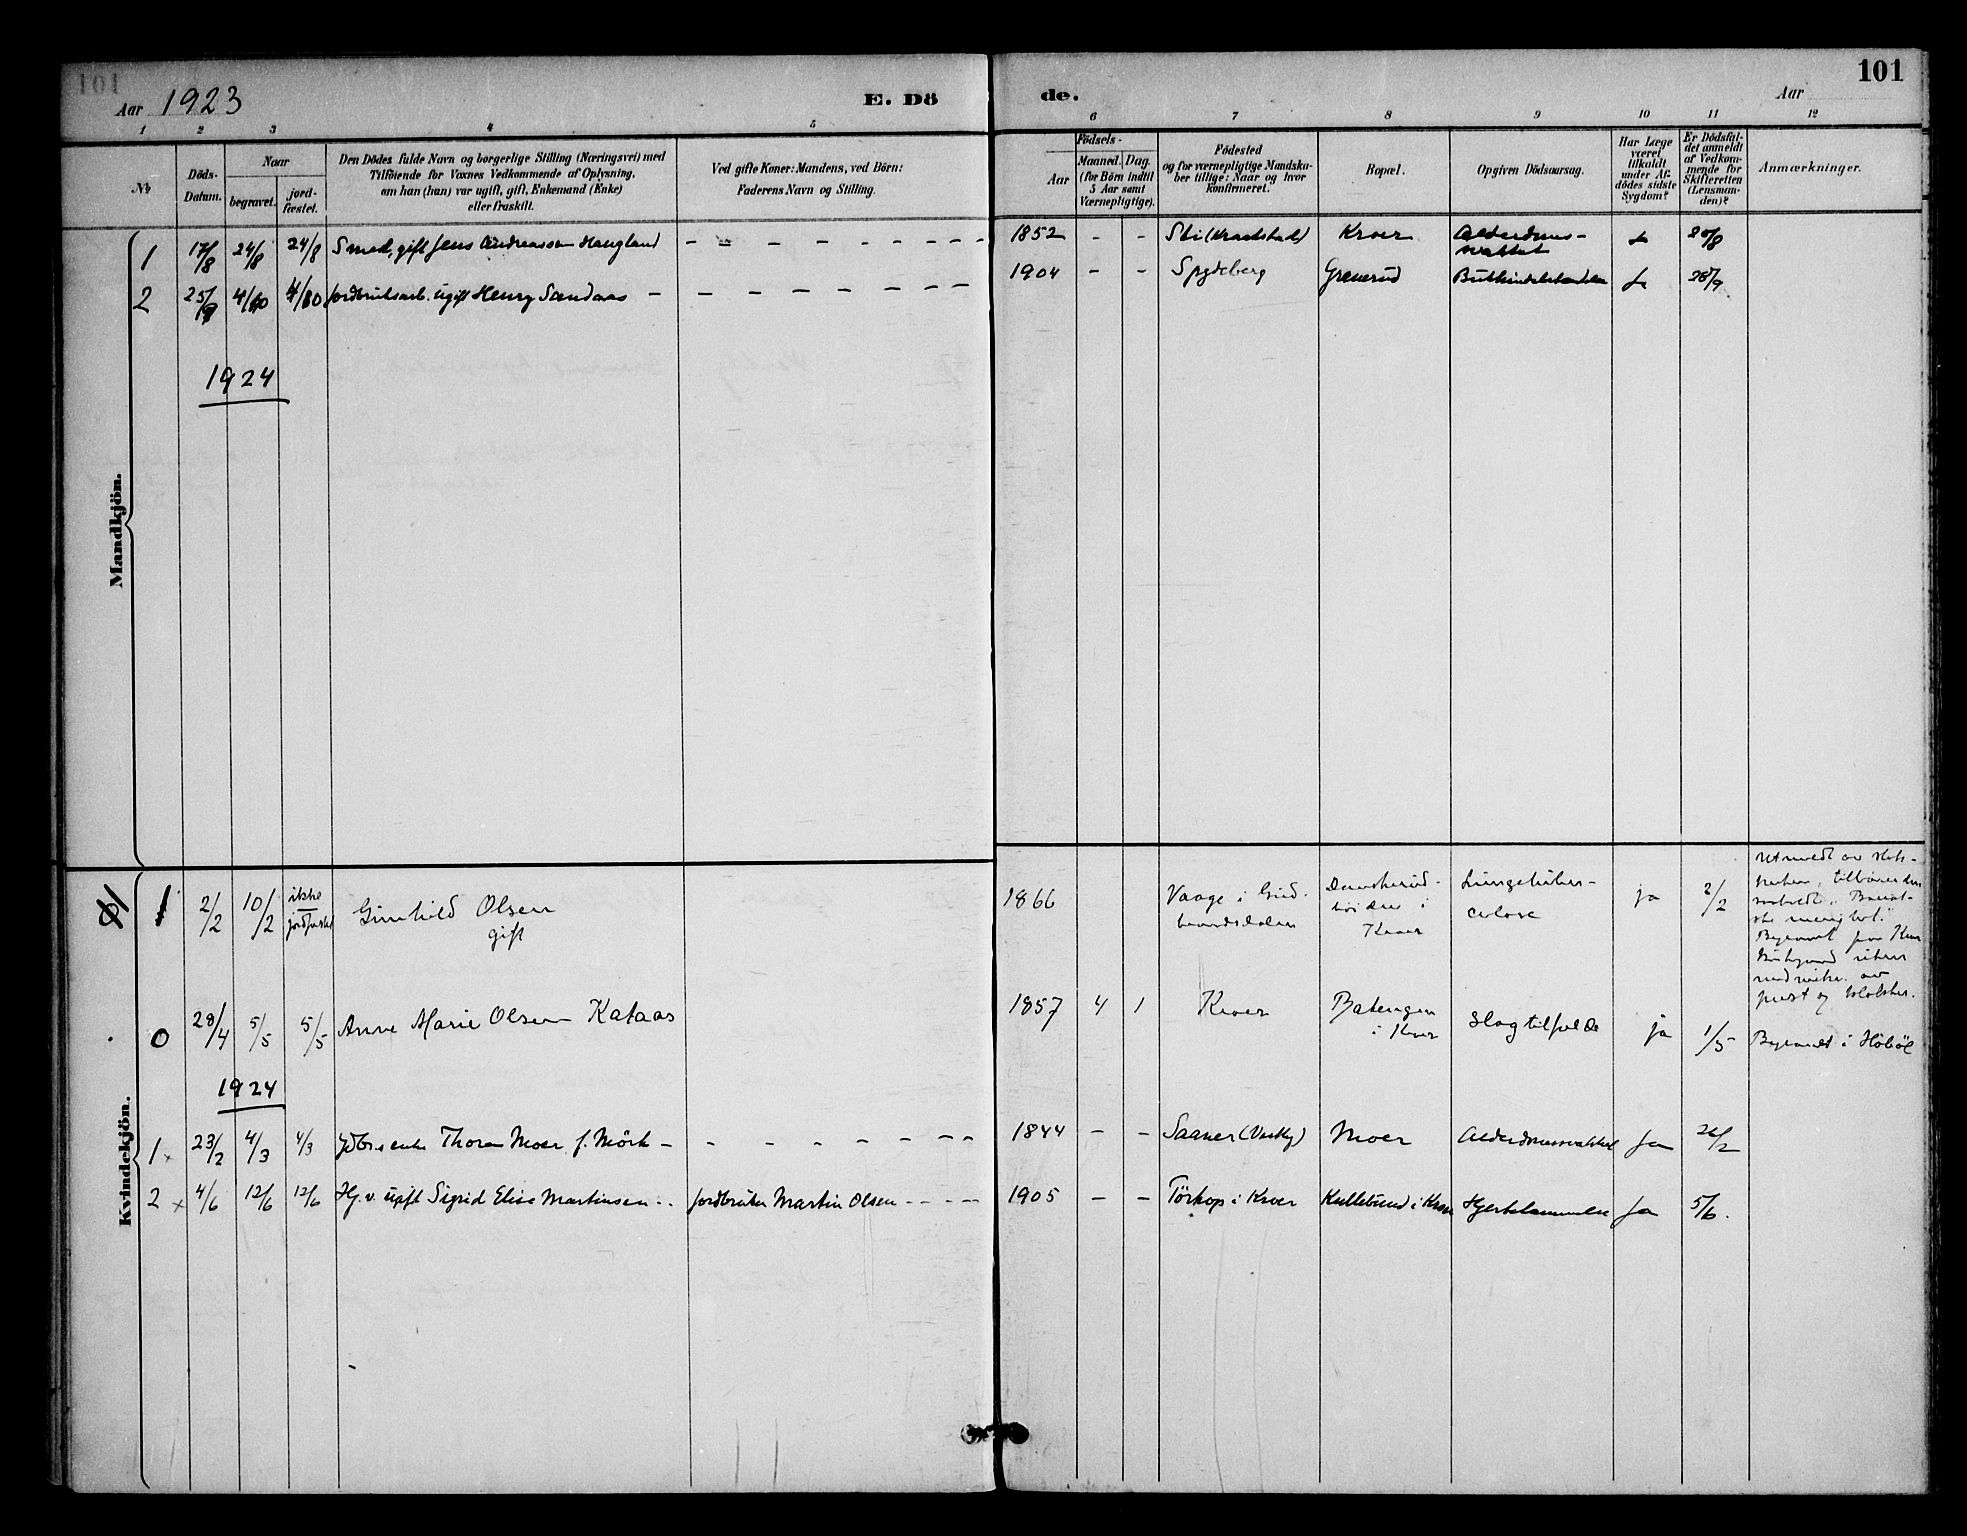 101
Aar 1923
E. Dö
de.
101
Aar
1 2 3 4 5 6 7 8 9 10 11 12
№
Döds-
Datum.
Naar
begravet.
jord-
fæstet.
Den Dödes fulde Navn og borgerlige Stilling (Næringsvei) med
Tilföiende for Voxnes Vedkommende af Oplysning,
om han (hun) var ugift, gift, Enkemand (Enke)
eller fraskilt.
Ved gifte Koner: Mandens, ved Börn:
Faderens Navn og Stilling.
Födsels-
Aar
Maaned. Dag.
(for Börn indtil
5 Aar samt
Værnepligtige).
Födested
og for værnepligtige Mandska-
ber tillige: Naar og hvor
Konfirmeret.
Bopæl.
Opgiven Dödsaarsag.
Har Læge
været
tilkaldt
under Af-
dödes sidste
Sygdom?
Er Dödsfal-
det anmeldt
af Vedkom-
mende for
Skifteretten
(Lensman-
den)?
Anmærkninger.
Mandkjön.
1 17/8 24/8 24/8 Smed, gift Jens Andreassen Haugland - - - - - - - - 1852 - - Ski (Kraakstad) Kroer Alderdoms-
svakhet
2 25/9 4/10 4/10 Jordbruksarb. ugift Henry Sandaas - - - - - - - - 1904 - - Spydeberg 28/9
1924
Kvindekjön.
1 2/2 10/2 ikke
jordfæstet
Gunhild Olsen
gift
1866 Vaage i Gud-
brandsdalen
i
Kroer
ja 2/2
0 28/4 5/5 5/5 Anne Marie Olsen Kataas 1857 4 1 Kroer Bakengen
i Kroer
Slagtilfælde ja 1/5 Begravet i Hobøl
1924
1 x 23/2 4/3 4/3 enke Thora Moer f. Mörk - - - - - - - 1844 - - Saaner (Vestby) Moer Alderdomssvakhet Ja 26/2
2 x 4/6 12/6 12/6 Hj. v. ugift Sigrid Elise Martinsen Jordbruker Martin Olsen - - - - 1905 - - Törkop i Kroer Kullebund i Kroer Hjertelammelse Ja 5/6.